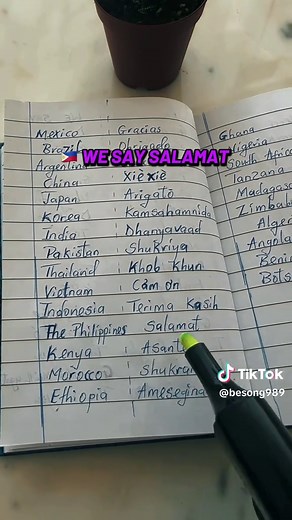 Mexico : Gracias
Brazil : Obrigado
🇵🇭 WE SAY SALAMAT
Argentina
China : Xiè xiè
Japan : Arigato
Korea : Kamsahamnida
India : Dhanyavaad
Pakistan : Shukriya
Thailand : Khob Khun
Vietnam : Cảm ơn
Indonesia : Terima Kasih
The Philippines Salamat
Kenya : Asante
Morocco : Shukran
Ethiopia : Ameseginal
Ghana
Nigeria
South Africa
Tanzania
Madagas
Zimbab
Alger
Angola
Beni
Bots
TikTok
@besong989